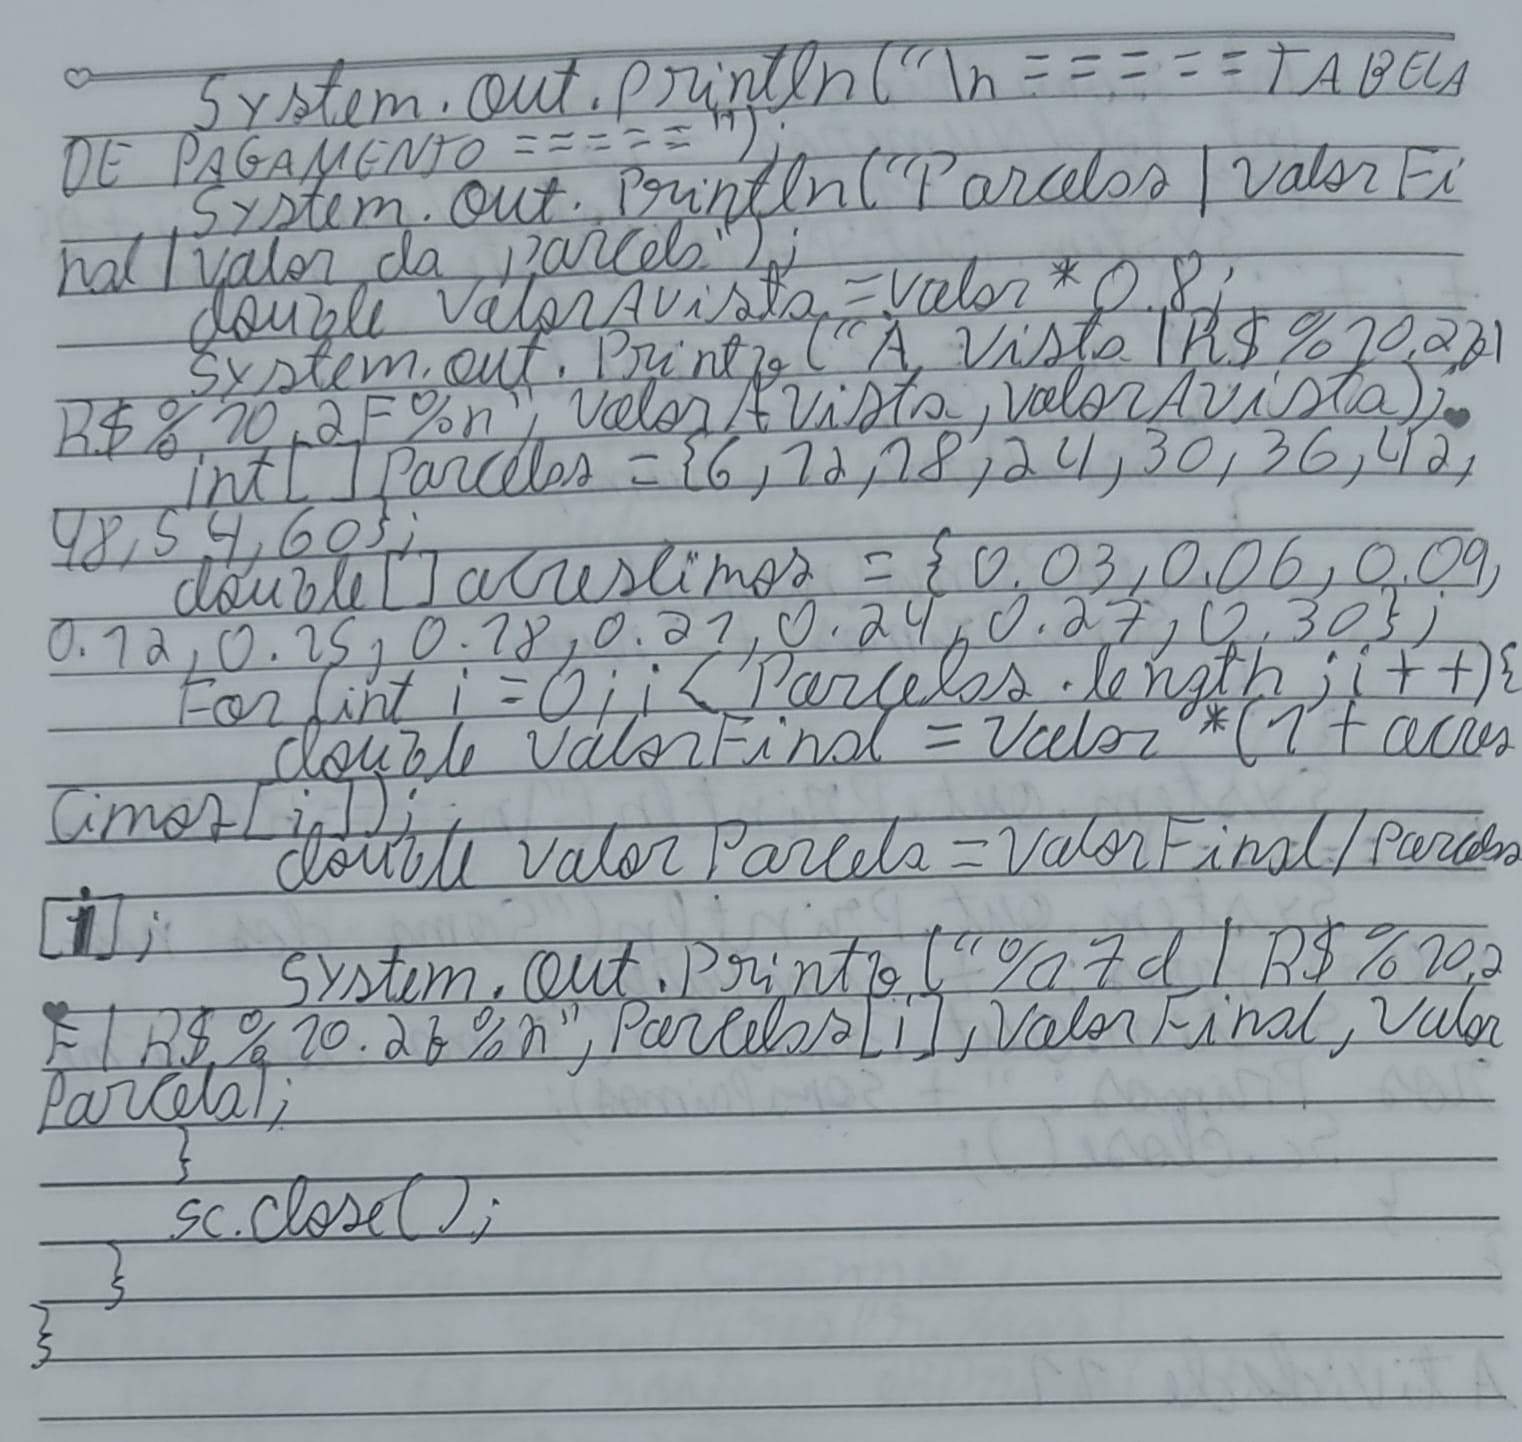 System.out.println("\n =====TABELA
DE PAGAMENTO =====");
System.out.println("Parcelas | Valor Fi
nal | Valor da parcela");
double valorAvista = valor * 0.8;
System.out.printf("À Vista | R$ %10.2f |
R$ %10.2F%n", valorAvista, valorAvista);
int[] Parcelas = {6, 12, 18, 24, 30, 36, 42,
48, 54, 60};
double[] acrescimos = {0.03, 0.06, 0.09,
0.12, 0.15, 0.18, 0.21, 0.24, 0.27, 0.30};
For (int i = 0; i < Parcelas.length; i++){
double valorFinal = Valor * (1 + acres
cimos[i]);
double valorParcela = valorFinal / Parcelas
[i];
System.out.Printf("%7d | R$ %10.2
F | R$ %10.2f %n", Parcelas[i], ValorFinal, Valor
Parcela);
}
sc.close();
}
}